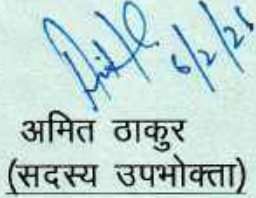 6/2/25
अमित ठाकुर
(सदस्य उपभोक्ता)